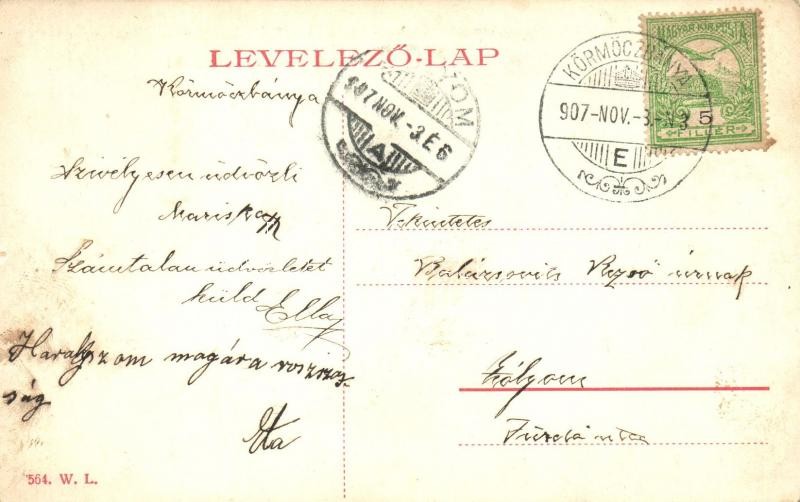 LEVELEZŐ-LAP
Körmöczbánya
Szivélyesen üdvözli
Mariska
Számtalan üdvözletet
küld Ella
Harakszom magára rosszas-
ság
Eta
564. W. L.
907 NOV. -3. É 6
A
KÖRMÖCZBÁNYA
907-NOV.-3.
E
MAGYAR KIR. POSTA
5
FILLÉR
Tekintetes
Balázsovits Rezső úrnak
Zólyom
Fürdő utca